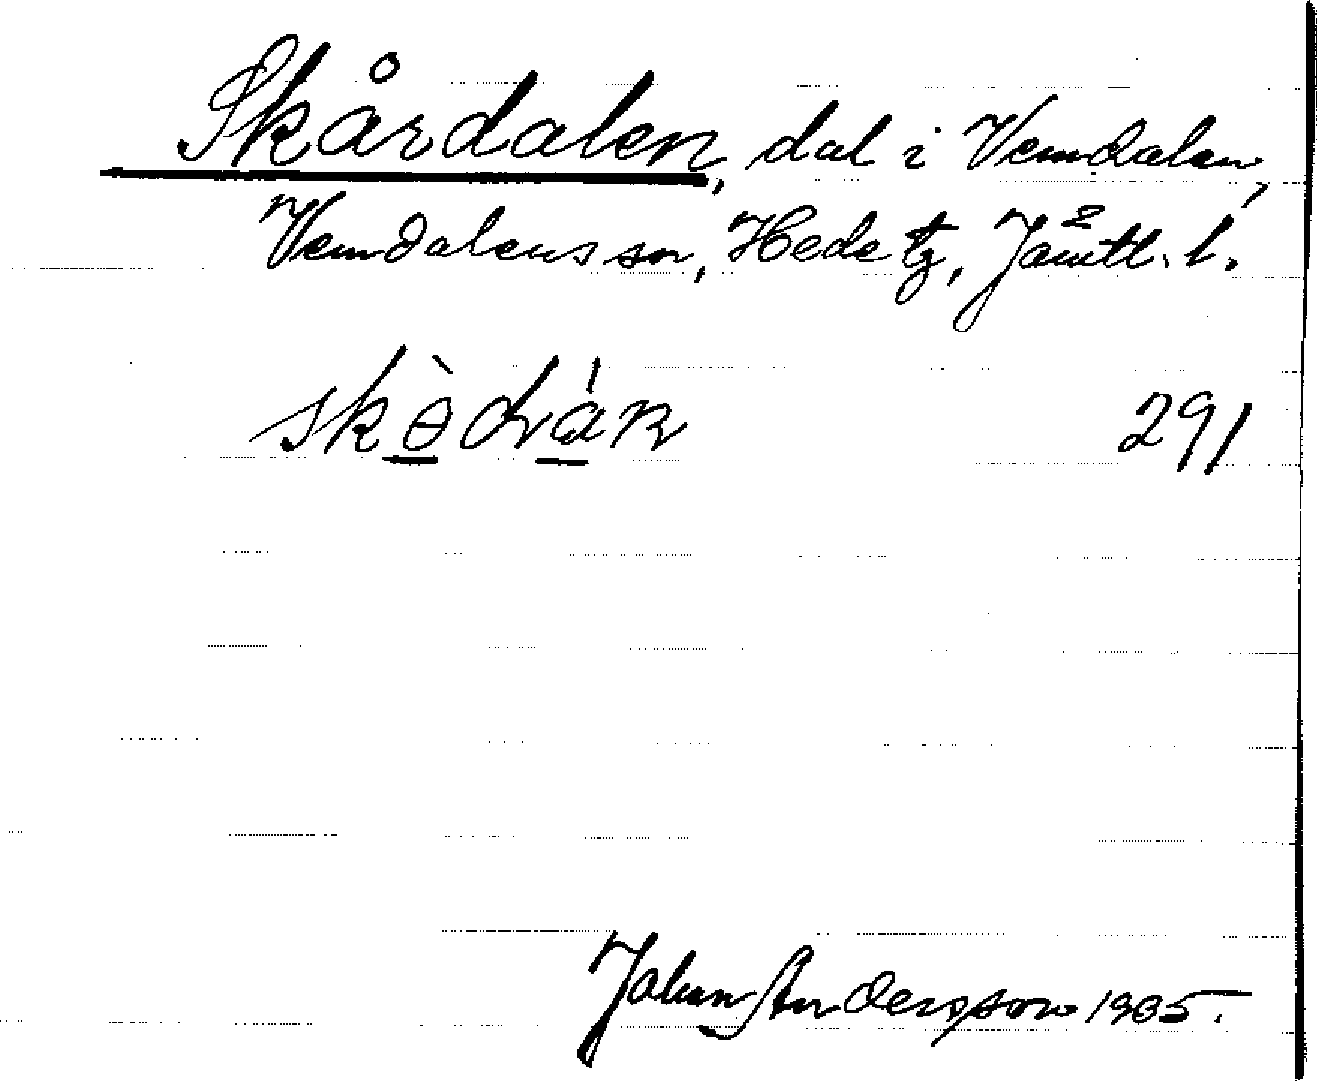 Skårdalen, dal i Vemdalen,
Vemdalens sn, Hede tg, Jämtl. l.
skɵ̀dɹán 291
Johan Andersson 1935.